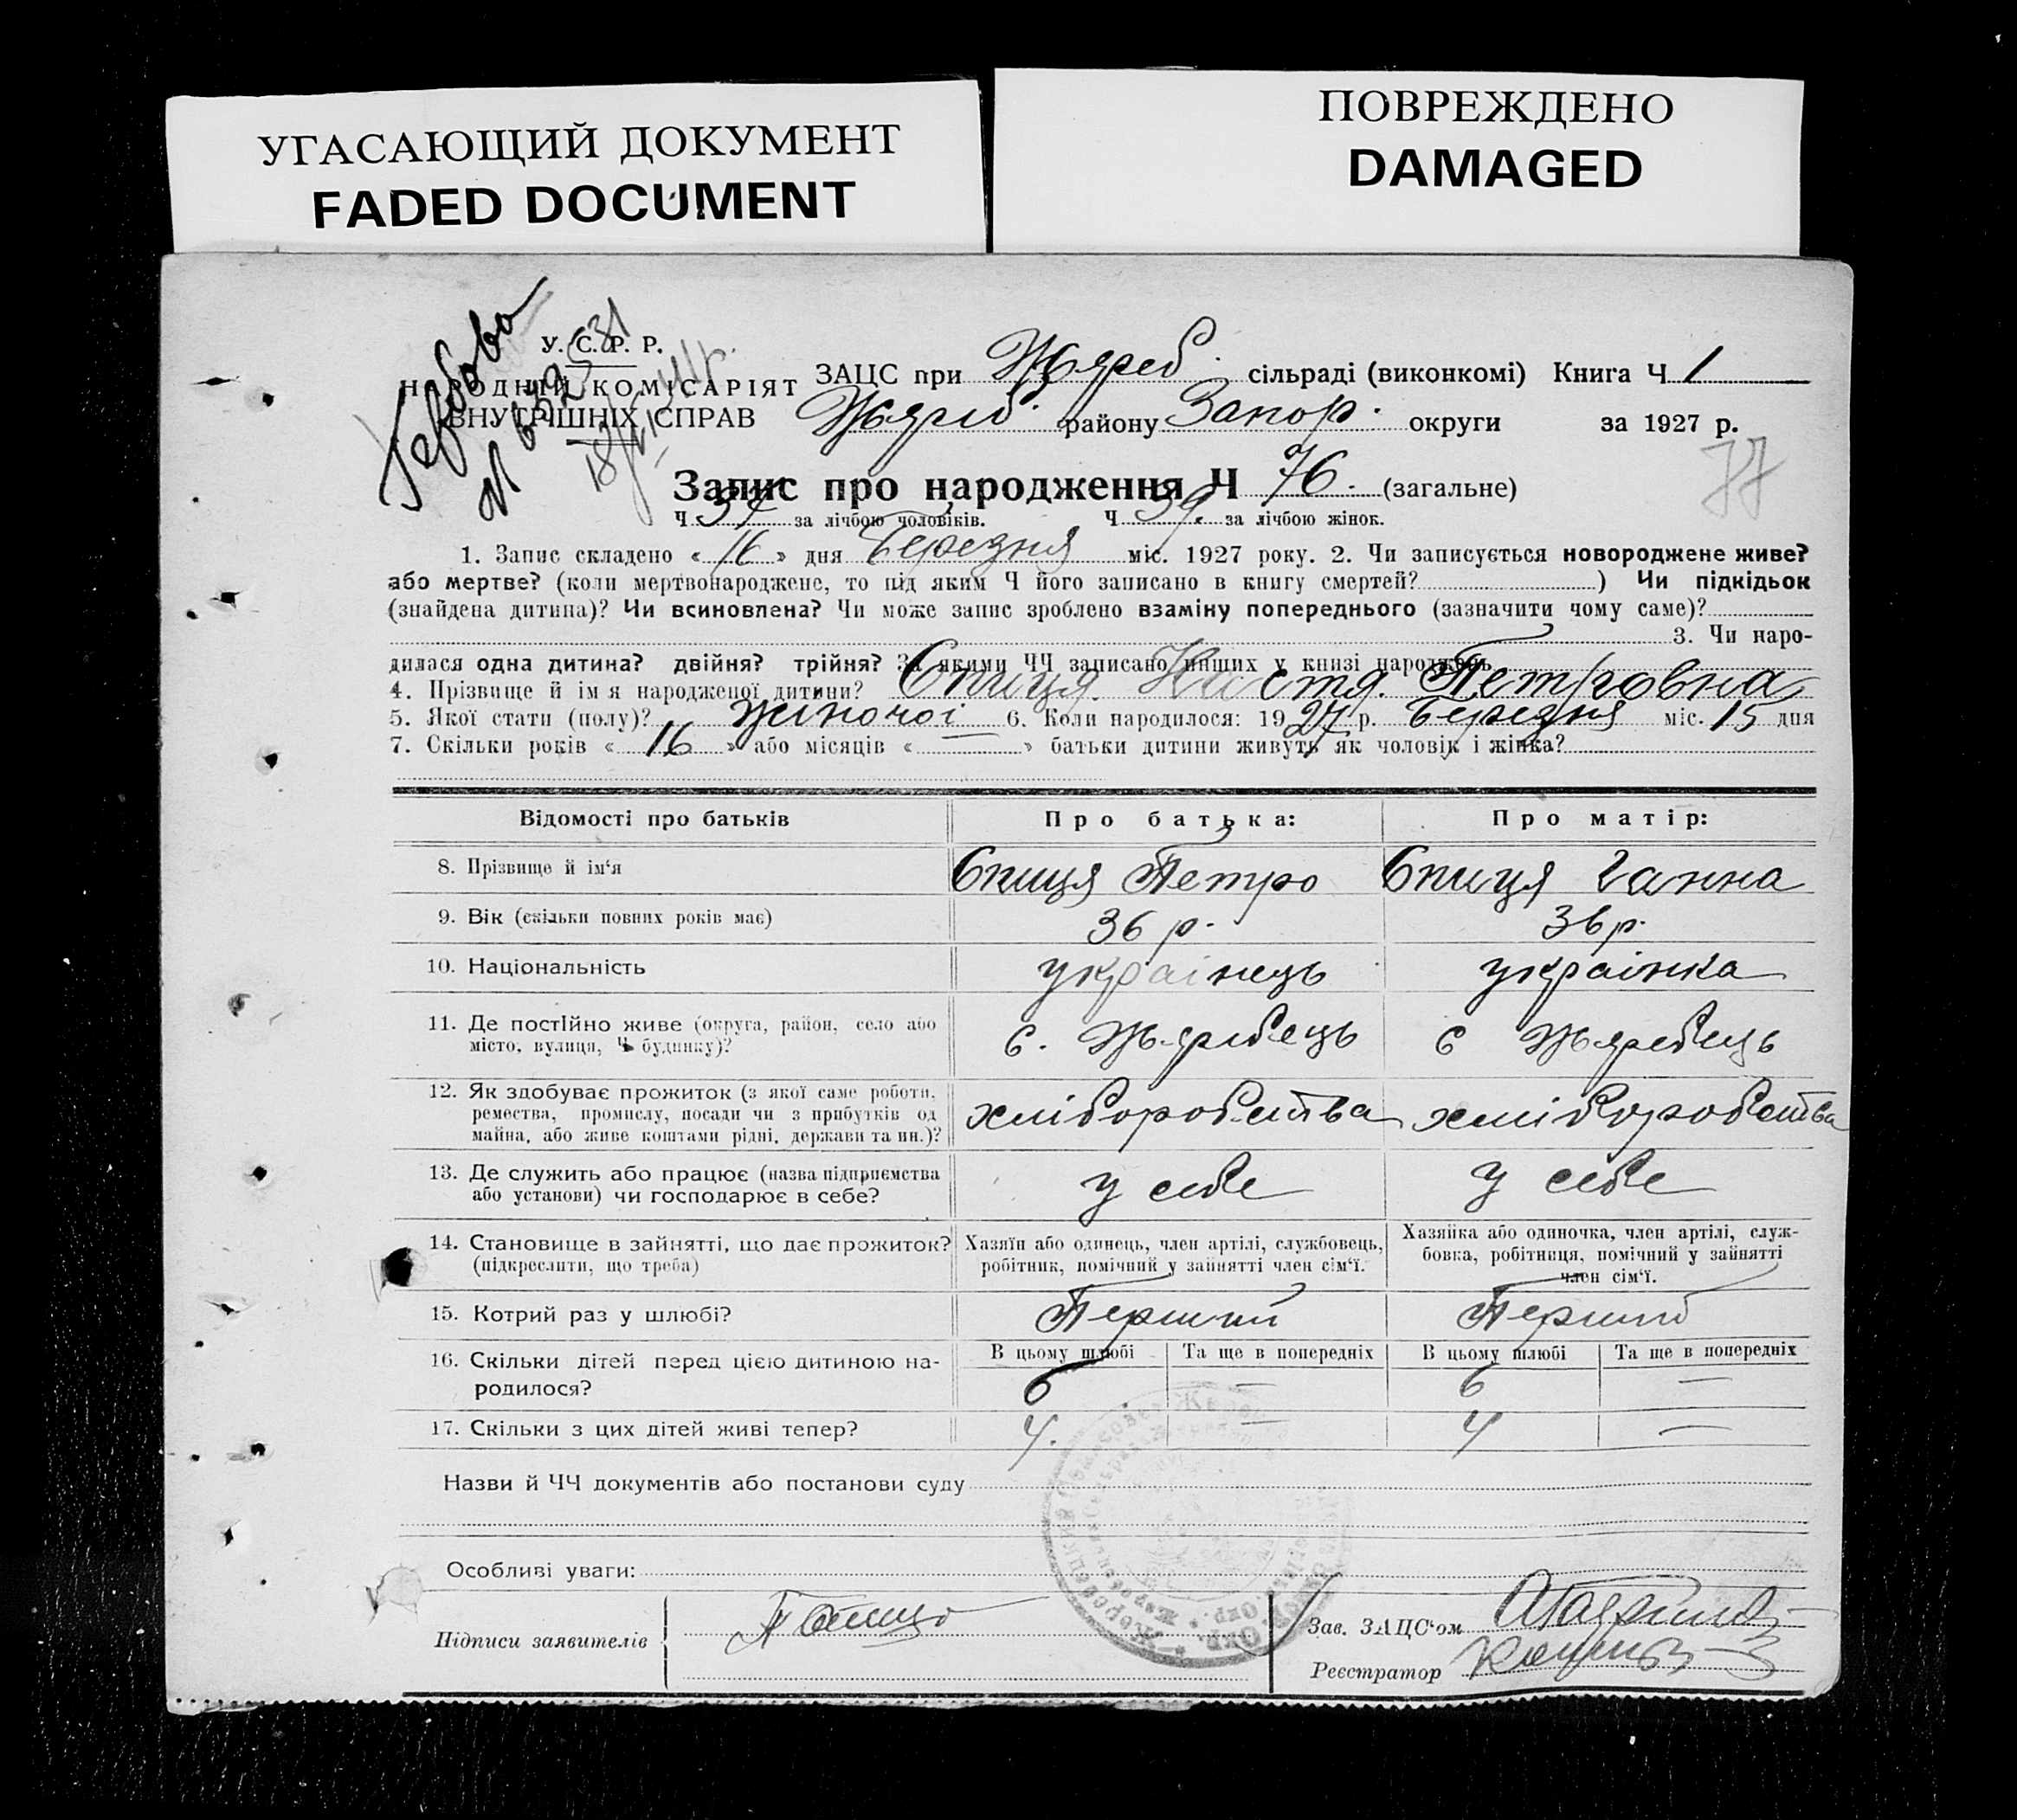 УГАСАЮЩИЙ ДОКУМЕНТ
FADED DOCUMENT
ПОВРЕЖДЕНО
DAMAGED
Гербова
У. С. Р. Р.
НАРОДНІЙ КОМІСАРІЯТ
ВНУТРІШНІХ СПРАВ
ЗАЦС при Жереб. сільраді (виконкомі) Книга Ч 1
Жереб. району Запор. округи за 1927 р.
77
Запис про народження Ч 76. (загальне)
Ч 37 за лічбою чоловіків. Ч 39 за лічбою жінок.
1. Запис складено « 16 » дня Березня міс. 1927 року. 2. Чи записується новороджене живе?
або мертве? (коли мертвонароджене, то під яким Ч його записано в книгу смертей? ) Чи підкідьок
(знайдена дитина)? Чи всиновлена? Чи може запис зроблено взаміну попереднього (зазначити чому саме)?
3. Чи наро-
дилася одна дитина? двійня? трійня? За якими ЧЧ записано инших у книзі народжень
4. Прізвище й імя народженої дитини? Спиця Настя Петровна
5. Якої стати (полу)? жіночої 6. Коли народилося: 1927 р. Березня міс. 15 дня
7. Скільки років « 16 » або місяців « — » батьки дитини живуть як чоловік і жінка?
Відомості про батьків Про батька: Про матір:
8. Прізвище й ім'я Спиця Петро Спиця Ганна
9. Вік (скільки повних років має) 36 р. 36 р.
10. Національність українець українка
11. Де постійно живе (округа, район, село або
місто, вулиця, Ч будинку)? с. Жеребець с Жеребець
12. Як здобуває прожиток (з якої саме роботи,
ремества, промислу, посади чи з прибутків од
майна, або живе коштами рідні, держави та ин.)? хліборобства хліборобства
13. Де служить або працює (назва підприємства
або установи) чи господарює в себе? у себе у себе
14. Становище в зайнятті, що дає прожиток?
(підкреслити, що треба)
Хазяїн або одинець, член артілі, службовець,
робітник, помічний у зайнятті член сім'ї.
Хазяйка або одиночка, член артілі, служ-
бовка, робітниця, помічний у зайнятті
член сім'ї.
15. Котрий раз у шлюбі? Перший Перший
16. Скільки дітей перед цією дитиною на-
родилося?
В цьому шлюбі Та ще в попередніх В цьому шлюбі Та ще в попередніх
6 — 6 —
17. Скільки з цих дітей живі тепер? 4. — 4 —
Назви й ЧЧ документів або постанови суду
Особливі уваги:
Підписи заявителів
Зав. ЗАЦС'ом
Реєстратор